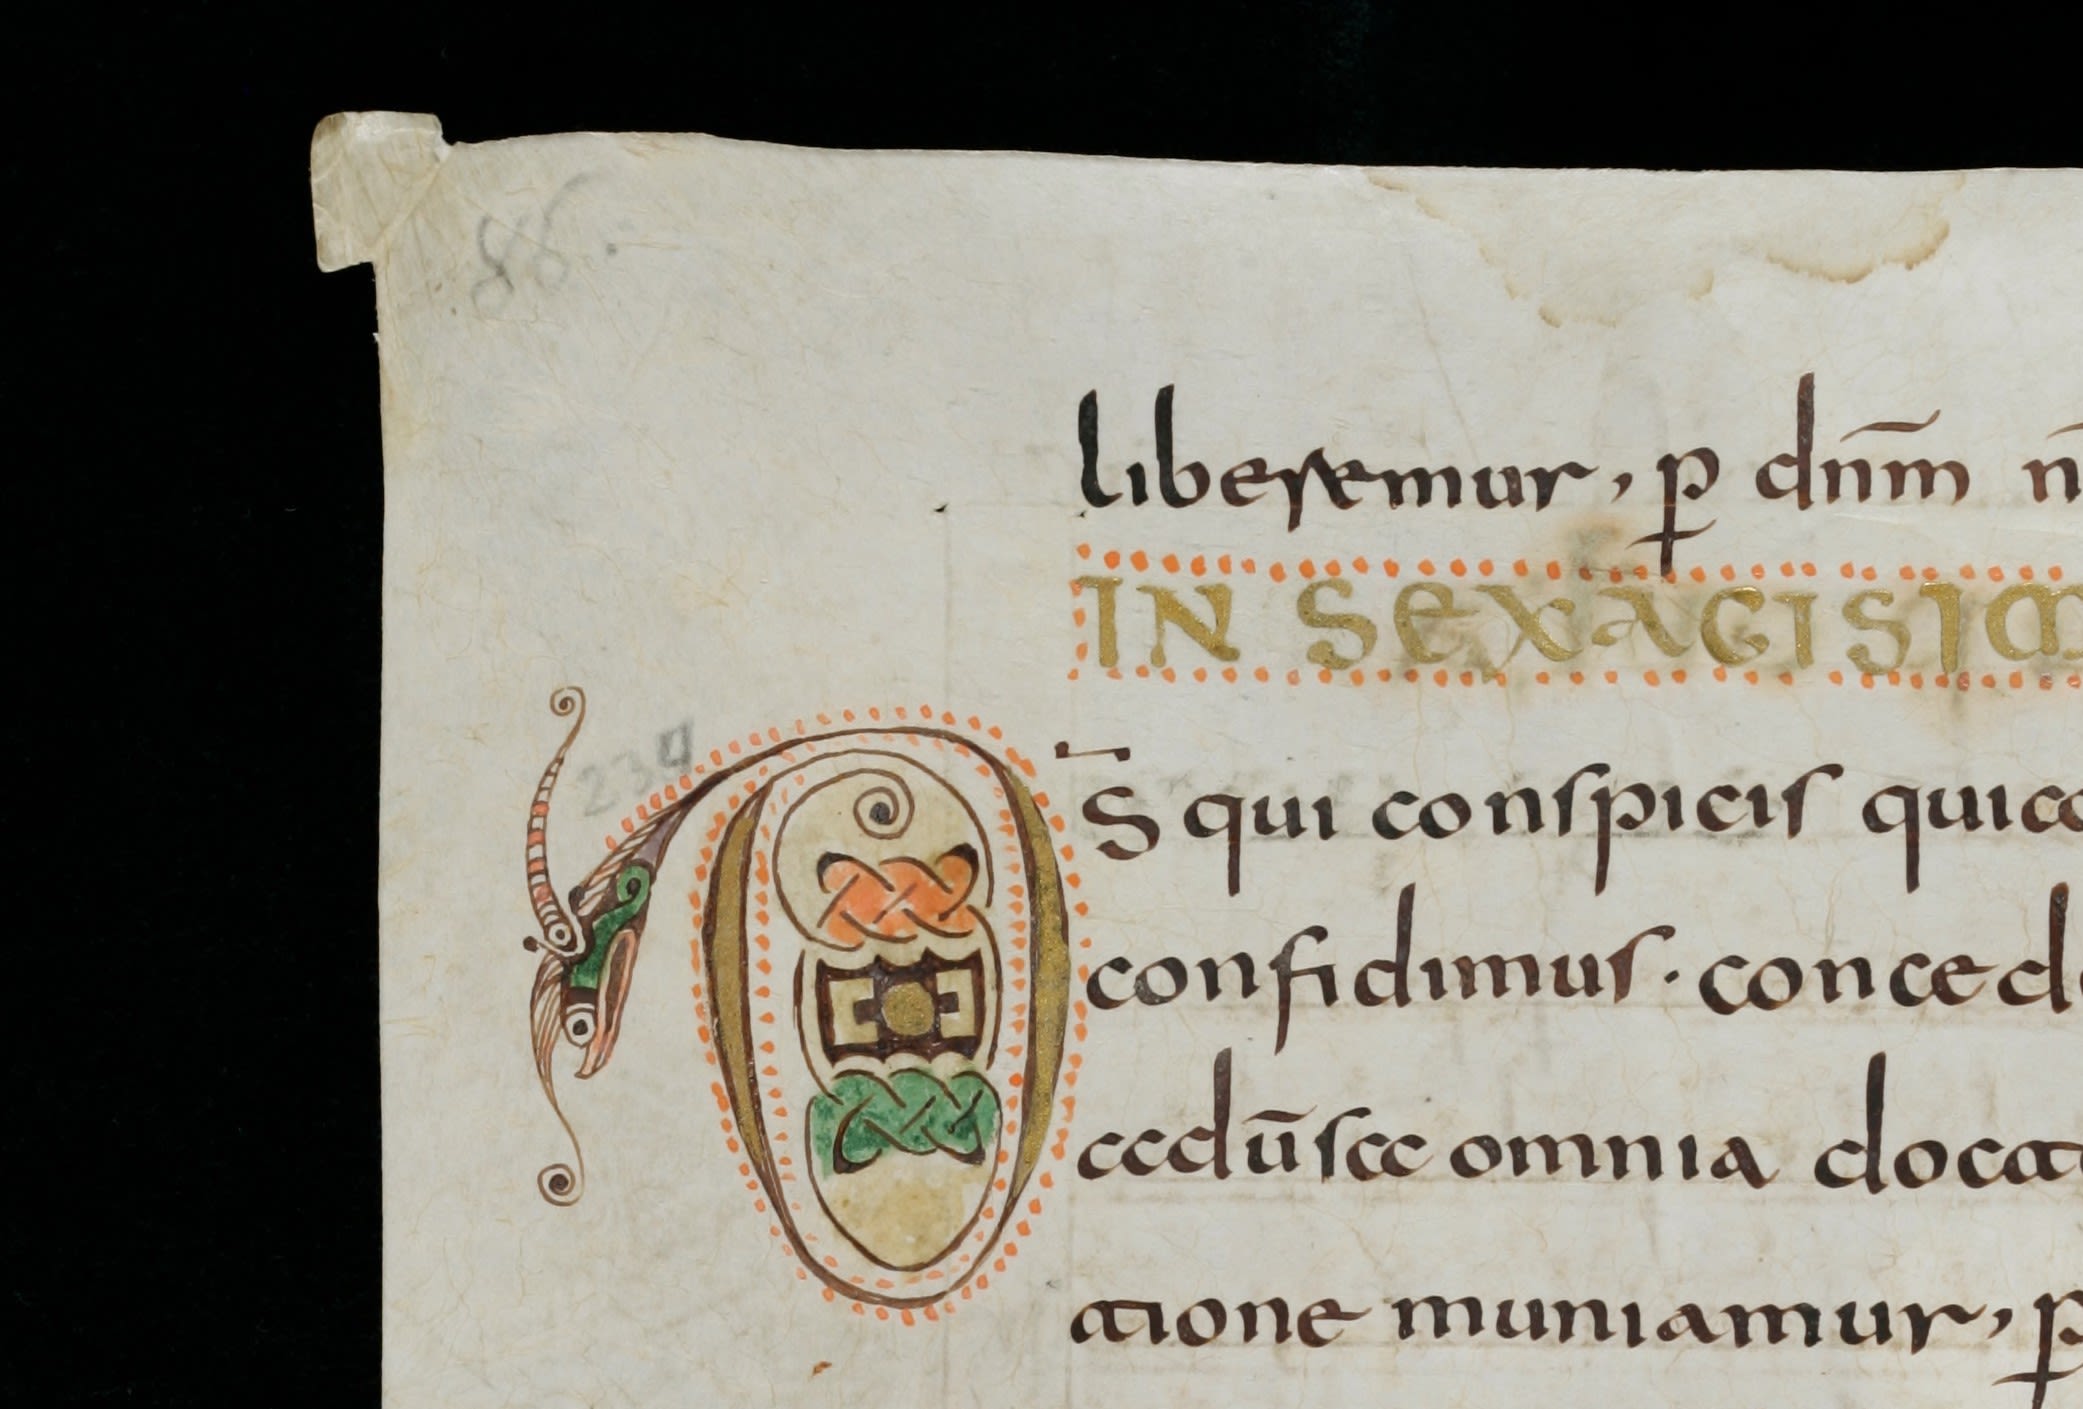 86.
liberemur, p̱ dn̄m n̄
IN SEXAGISIM
234
D S̄ qui conspicis quico
confidimus · concede
aduˉsa omnia docat
atione muniamur, p̱